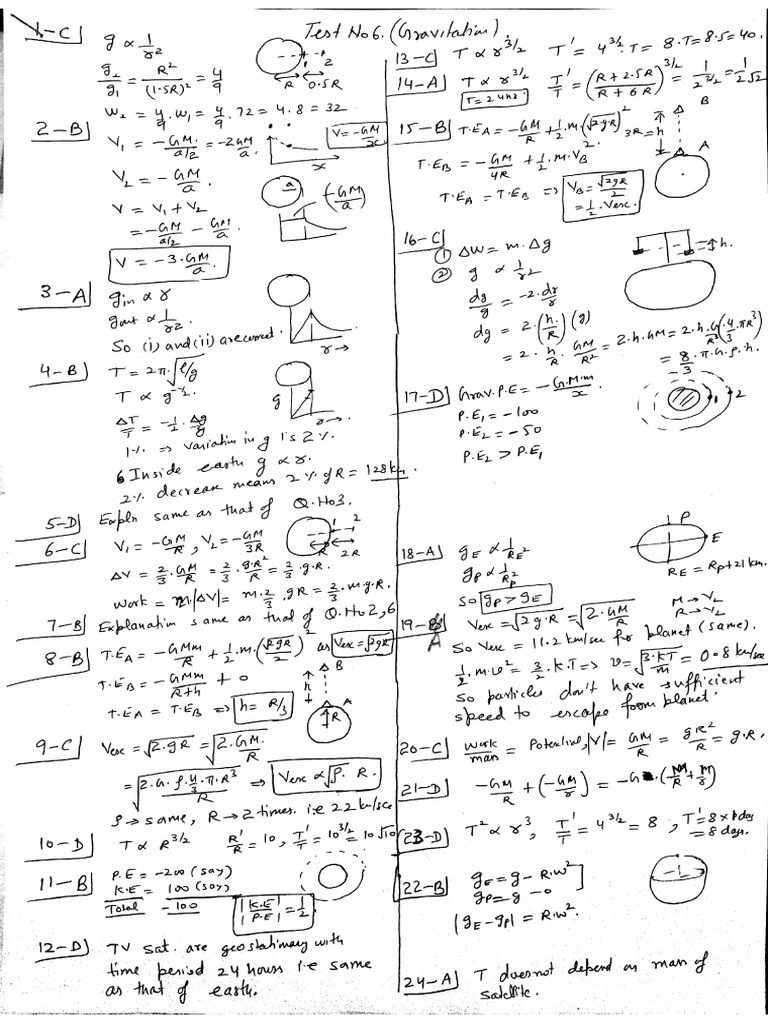 Test No 6. (Gravitation)
1-C] g ∝ 1/r²
g₂/g₁ = R²/(1.5R)² = 4/9
R 0.5R
W₂ = 4/9 . W₁ = 4/9 . 72 = 4.8 = 32
2-B] V₁ = -GM/(a/2) = -2GM/a.
V = -GM/x
x
V₂ = -GM/a.
a
(-GM/a)
V = V₁ + V₂
= -GM/(a/2) - GM/a.
V = -3.GM/a
3-A] g in ∝ r
g out ∝ 1/r².
So (i) and (ii) are correct.
r→
4-B] T = 2π.√(l/g)
T ∝ g^(-1/2)
g
r→
ΔT/T = -1/2 . Δg/g
1% ⇒ variation in g is 2%.
Inside earth g ∝ r.
2% decrease means 2% of R = 128 km.
5-D] Expln same as that of Q.No3.
6-C] V₁ = -GM/R, V₂ = -GM/3R
1 2
R 2R
ΔV = 2/3 . GM/R = 2/3 . g.R²/R = 2/3 . g.R.
Work = m|ΔV| = m.2/3 . gR = 2/3 . m.g.R.
7-B] Explanation same as that of Q.No 2,6
8-B] T.E_A = -GMm/R + 1/2 .m.(√(2gR)/2)² as Vesc = √(2gR)
T.E_B = -GMm/(R+h) + 0
T.E_A = T.E_B ⇒ h = R/3
B
h
A
R
9-C] Vesc = √(2.gR) = √(2.GM/R)
= √(2.G.ρ.4/3.π.R³/R) ⇒ Vesc ∝ √ρ . R.
ρ → same, R → 2 times. i.e 22 km/sec
10-D] T ∝ R^(3/2) R'/R = 10, T'/T = 10^(3/2) = 10√10
11-B] P.E = -200 (say)
K.E = 100 (say)
Total -100 |K.E/P.E| = 1/2
12-D] TV Sat. are geostationary with
time period 24 hours i.e same
as that of earth.
13-C] T ∝ r^(3/2) T' = 4^(3/2).T = 8.T = 8.5 = 40.
14-A] T ∝ r^(3/2) T'/T = ((R + 2.5R)/(R + 6R))^(3/2) = 1/2^(3/2) = 1/2√2
T = 24hr.
15-B] T.E_A = -GMm/R + 1/2 .m.(√2gR)²
B
3R = h
A
T.E_B = -GMm/4R + 1/2 .m.V_B²
T.E_A = T.E_B ⇒ V_B = √(2gR)/2 = 1/2 . Vesc.
16-C] ① ΔW = m.Δg
h.
② g ∝ 1/r²
dg/g = -2.dr/r
dg = 2.(h/R)(g)
= 2. h/R . GM/R² = 2.h.GM/R³ = 2.h.G/R³(ρ.4/3.πR³)
= 8/3 . π.G.ρ.h.
17-D] Grav.P.E = -G.M.m/x
1 2
P.E₁ = -100
P.E₂ = -50
P.E₂ > P.E₁
18-A] g_E ∝ 1/R_E²
P
E
g_P ∝ 1/R_P²
R_E = R_P + 21 km.
So g_P > g_E
M → √2
R → √2
19-A Vesc = √(2gR) = √(2.GM/R)
So Vesc = 11.2 km/sec for planet (same).
1/2 .m.v² = 3/2 .k.T ⇒ v = √(3.kT/m) = 0.8 km/sec
So particles don't have sufficient
speed to escape from planet.
20-C] Work/mass = Potential, |V| = GM/R = gR²/R = g.R.
21-D] -GM/R + (-GM/r) = -G.(M/R + M/r)
23-D] T² ∝ r³, T'/T = 4^(3/2) = 8, T' = 8 × 1 day
= 8 days.
22-B] g_E = g - R.w²
g_P = g - 0
|g_E - g_P| = R.w².
24-A] T doesnot depend on mass of
Satellite.